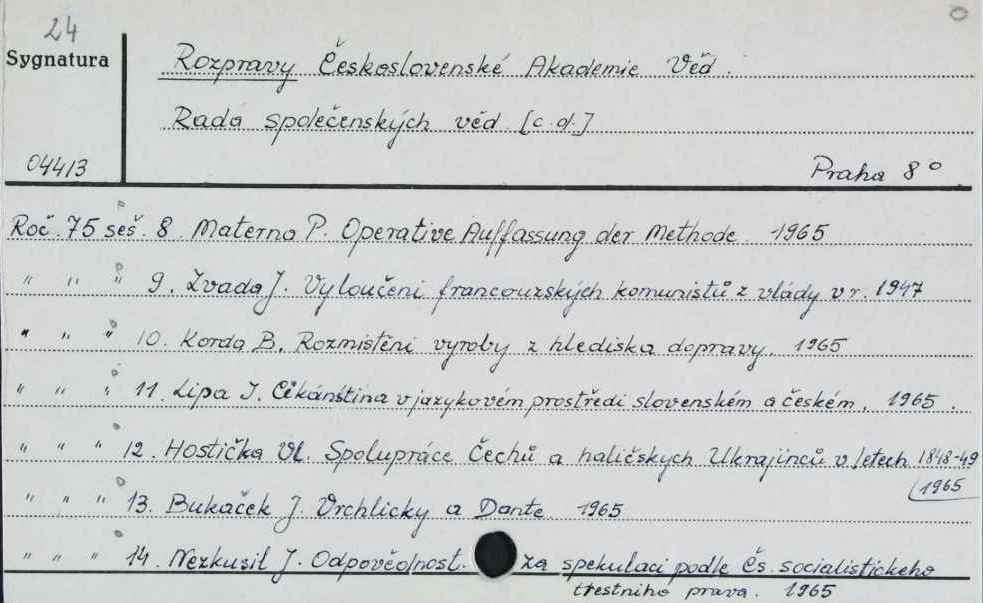 24
Sygnatura
Rozpravy Československé Akademie Věd.
Rada společenských věd [c.d.]
04413
Praha 8°
Roč. 75 seš. 8. Materna P. Operative Auffassung der Methode. 1965
" " " 9. Zvada J. Vyloučeni francouzských komunistů z vlády v r. 1947
" " " 10. Korda B. Rozmístěni vyroby z hlediska dopravy. 1965
" " " 11. Lipa J. Cikánština v jazykovém prostředi slovenském a českém. 1965.
" " " 12. Hostička Vl. Spolupráce Čechů a haličských Ukrajinců v letech 1848-49
1965
" " " 13. Bukaček J. Vrchlicky a Dante. 1965
" " " 14. Nezkusil J. Odpovědnost. za spekulaci podle čs. socialistickeho
trestniho prava. 1965